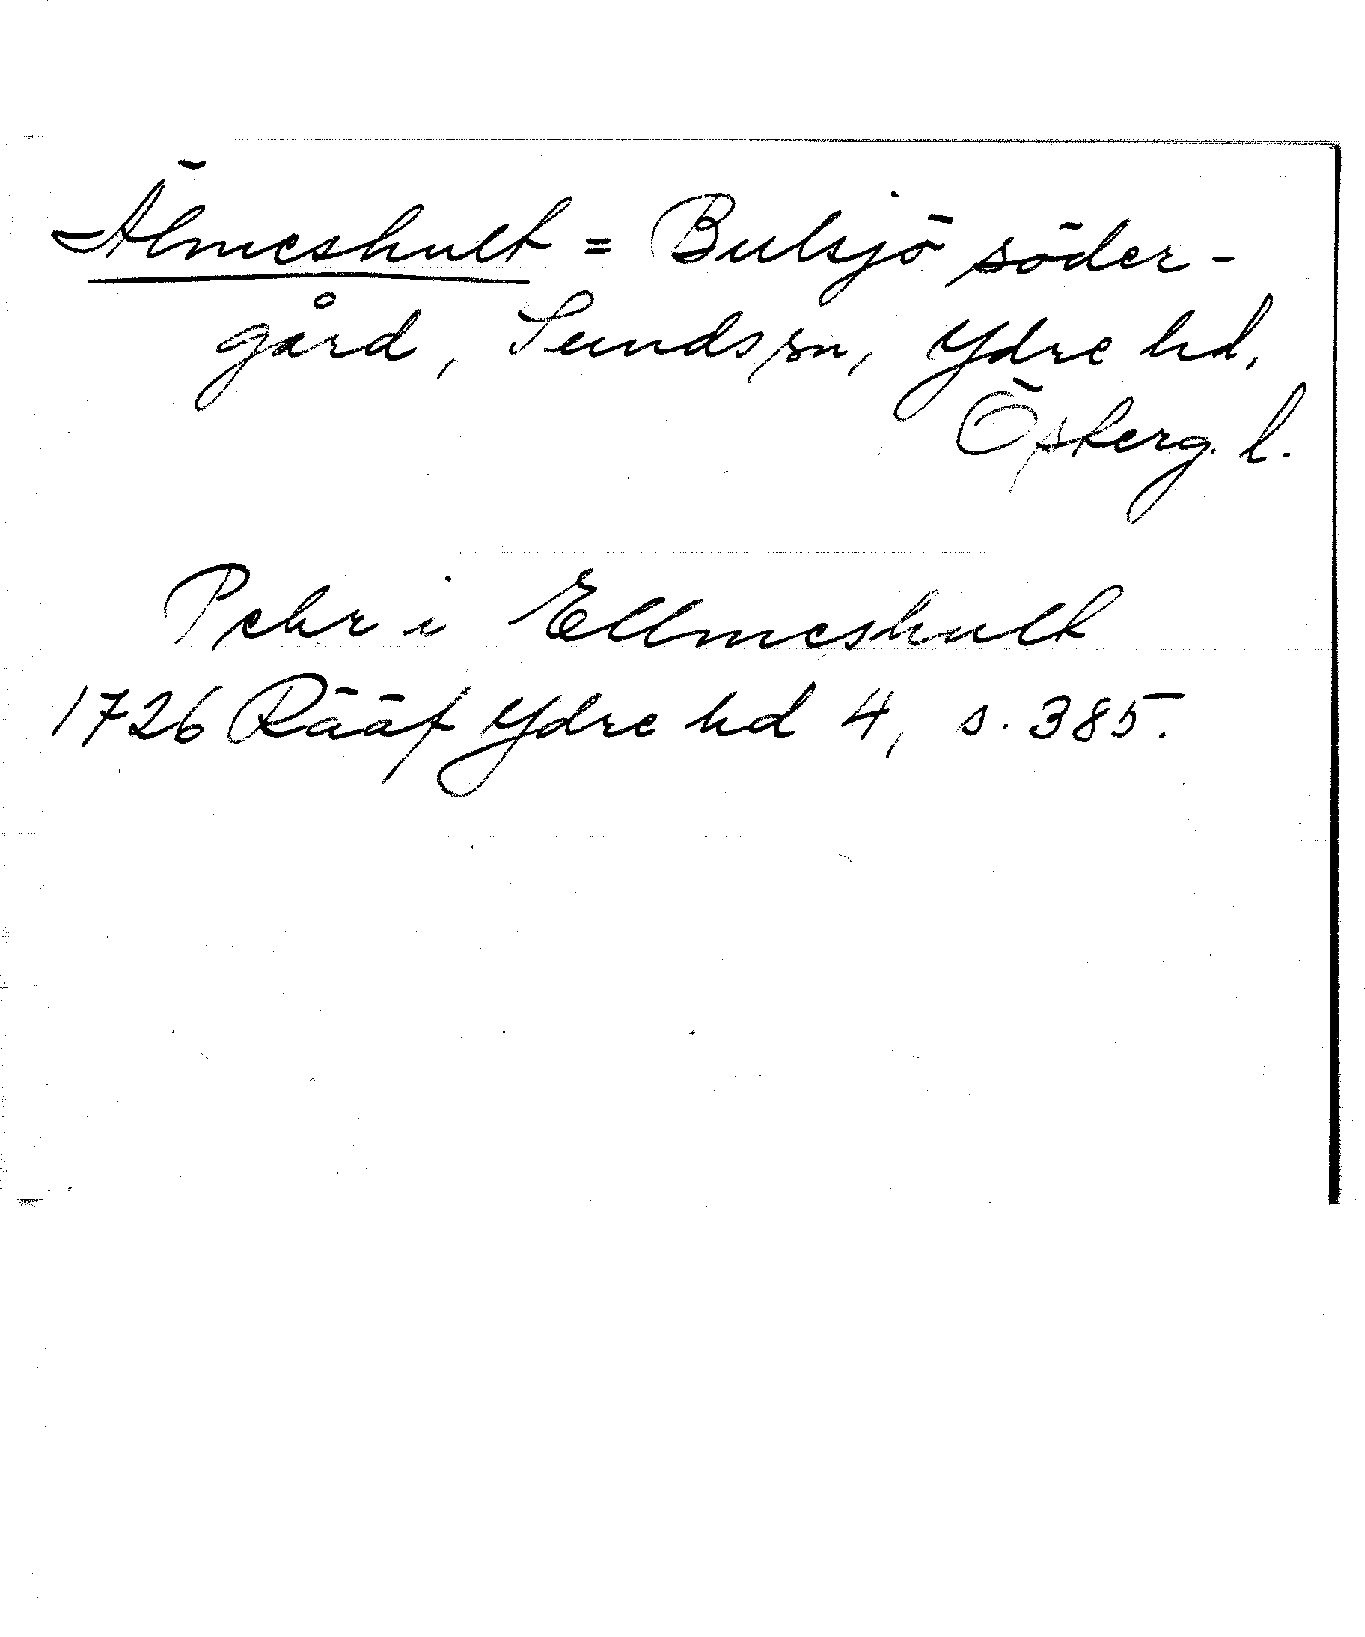 Älmeshult = Bulsjö söder-
gård, Sunds sn, Ydre hd,
Österg. l.
Pehr i Ellmeshult
1726 Rääf Ydre hd 4, s. 385.